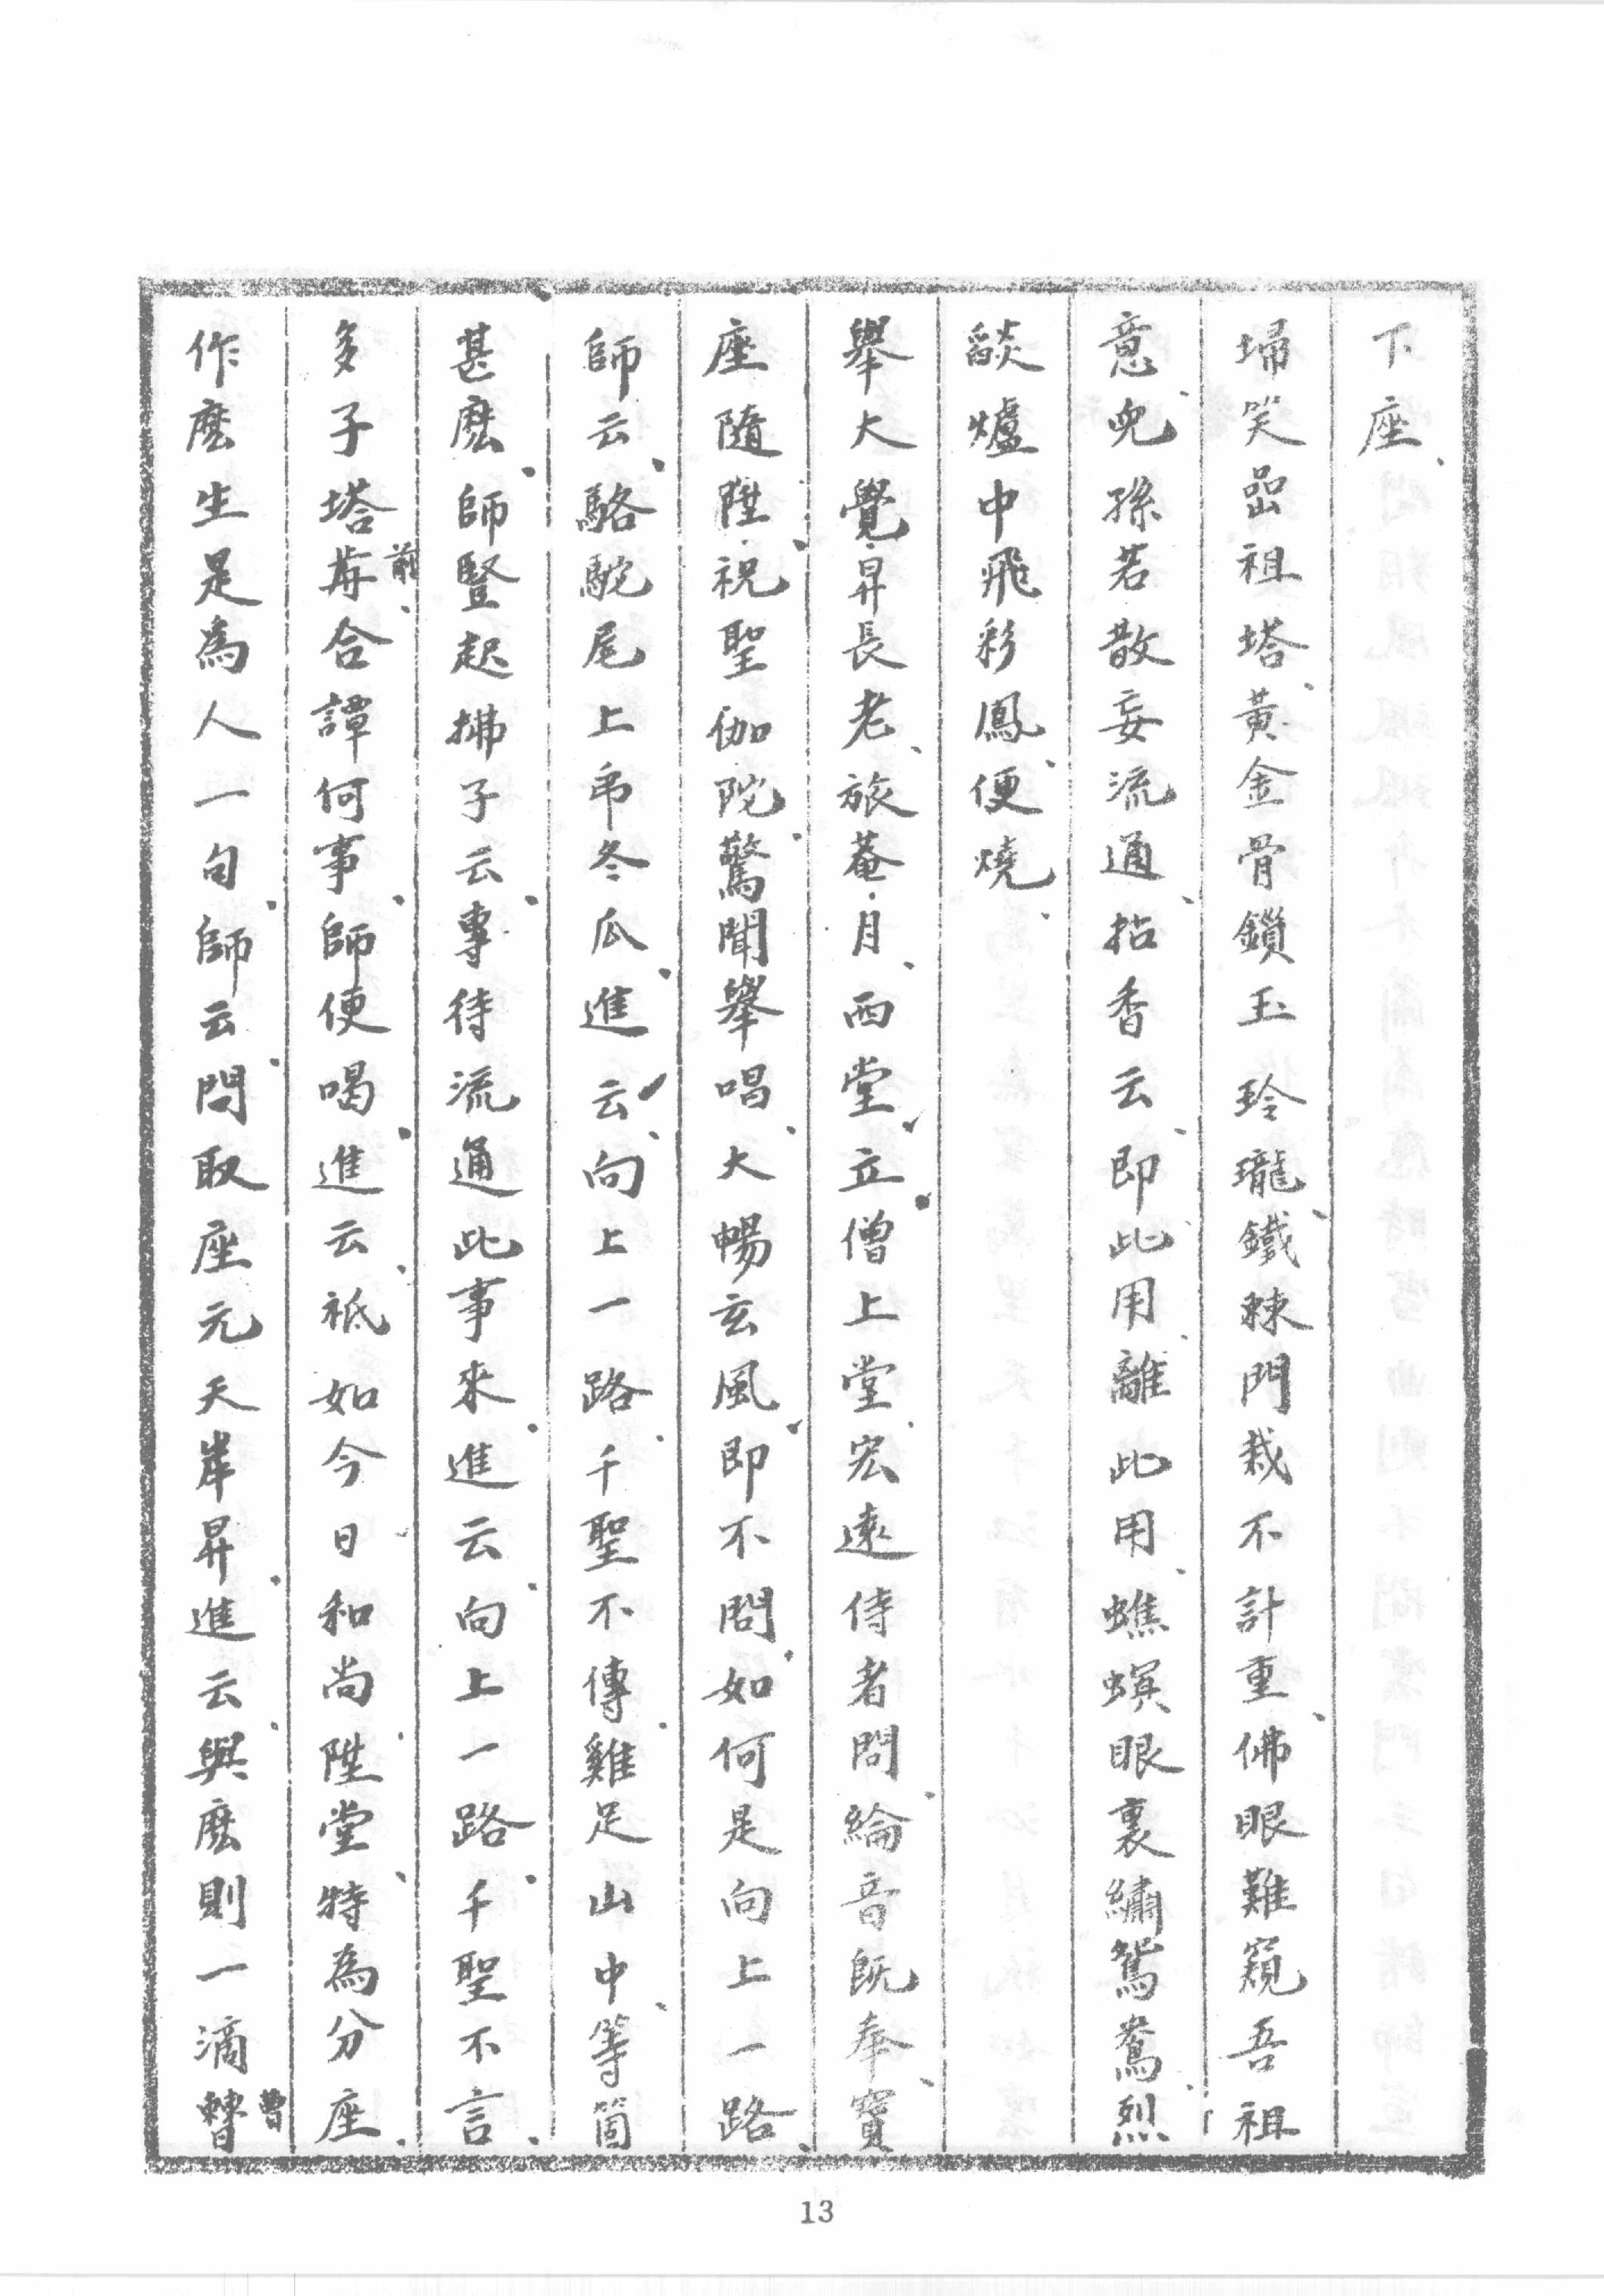 下座、
埽笑嵒祖塔、黃金骨鎖玉玲瓏、鐵棘門栽不計重、佛眼難窺吾祖
意、兒孫若散妄流通、拈香云、即此用、離此用、蟭螟眼裏繡鴛鴦、烈
燄爐中飛彩鳳、便燒、
舉大覺昇長老、旅菴月、西堂、立僧上堂、宏遠侍者問、綸音旣奉、寶
座隨陞、祝聖伽陀、驚聞舉唱、大暢玄風、即不問、如何是向上一路、
師云、駱駝尾上帋冬瓜、進云、向上一路、千聖不傳、雞足山中、等箇
甚麼、師豎起拂子云、專待流通此事來、進云、向上一路、千聖不言、
多子塔歬前、合譚何事、師便喝、進云、祇如今日和尚陞堂、特為分座、
作麼生是為人一句、師云、問取座元天岸昇、進云、與麼則一滴曹
13